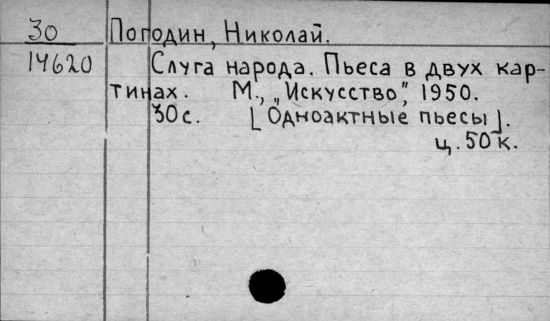 30 Погодин, Николай.
14620 Слуга народа. Пьеса в двух кар-
тинах. М., „Искусство", 1950.
30с. [Одноактные пьесы].
ц. 50 к.